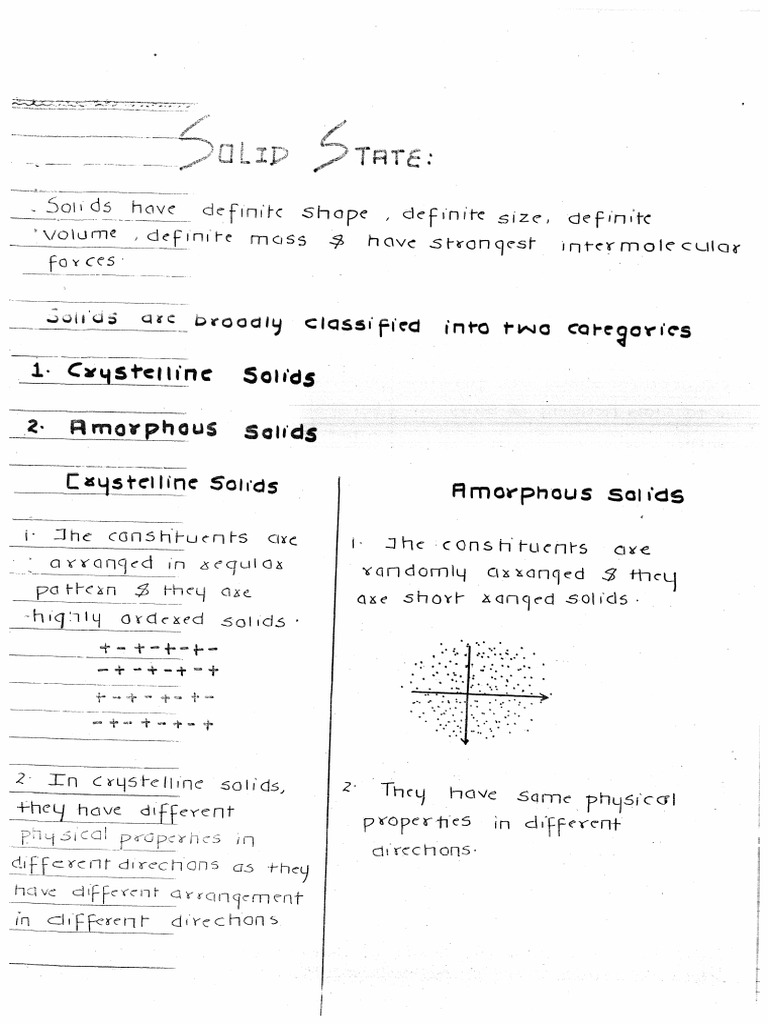 SOLID STATE:
Solids have definite shape, definite size, definite
volume, definite mass & have strongest intermolecular
forces.
Solids are broadly classified into two categories
1. Crystelline Solids
2. Amorphous Solids
Crystelline Solids
1. The constituents are
arranged in regular
pattern & they are
highly ordered solids.
+ - + - + - + -
- + - + - + - +
+ - + - + - + -
- + - + - + - +
2. In crystelline solids,
they have different
physical properties in
different directions as they
have different arrangement
in different directions
Amorphous Solids
1. The constituents are
randomly arranged & they
are short ranged solids.
2. They have same physical
properties in different
directions.